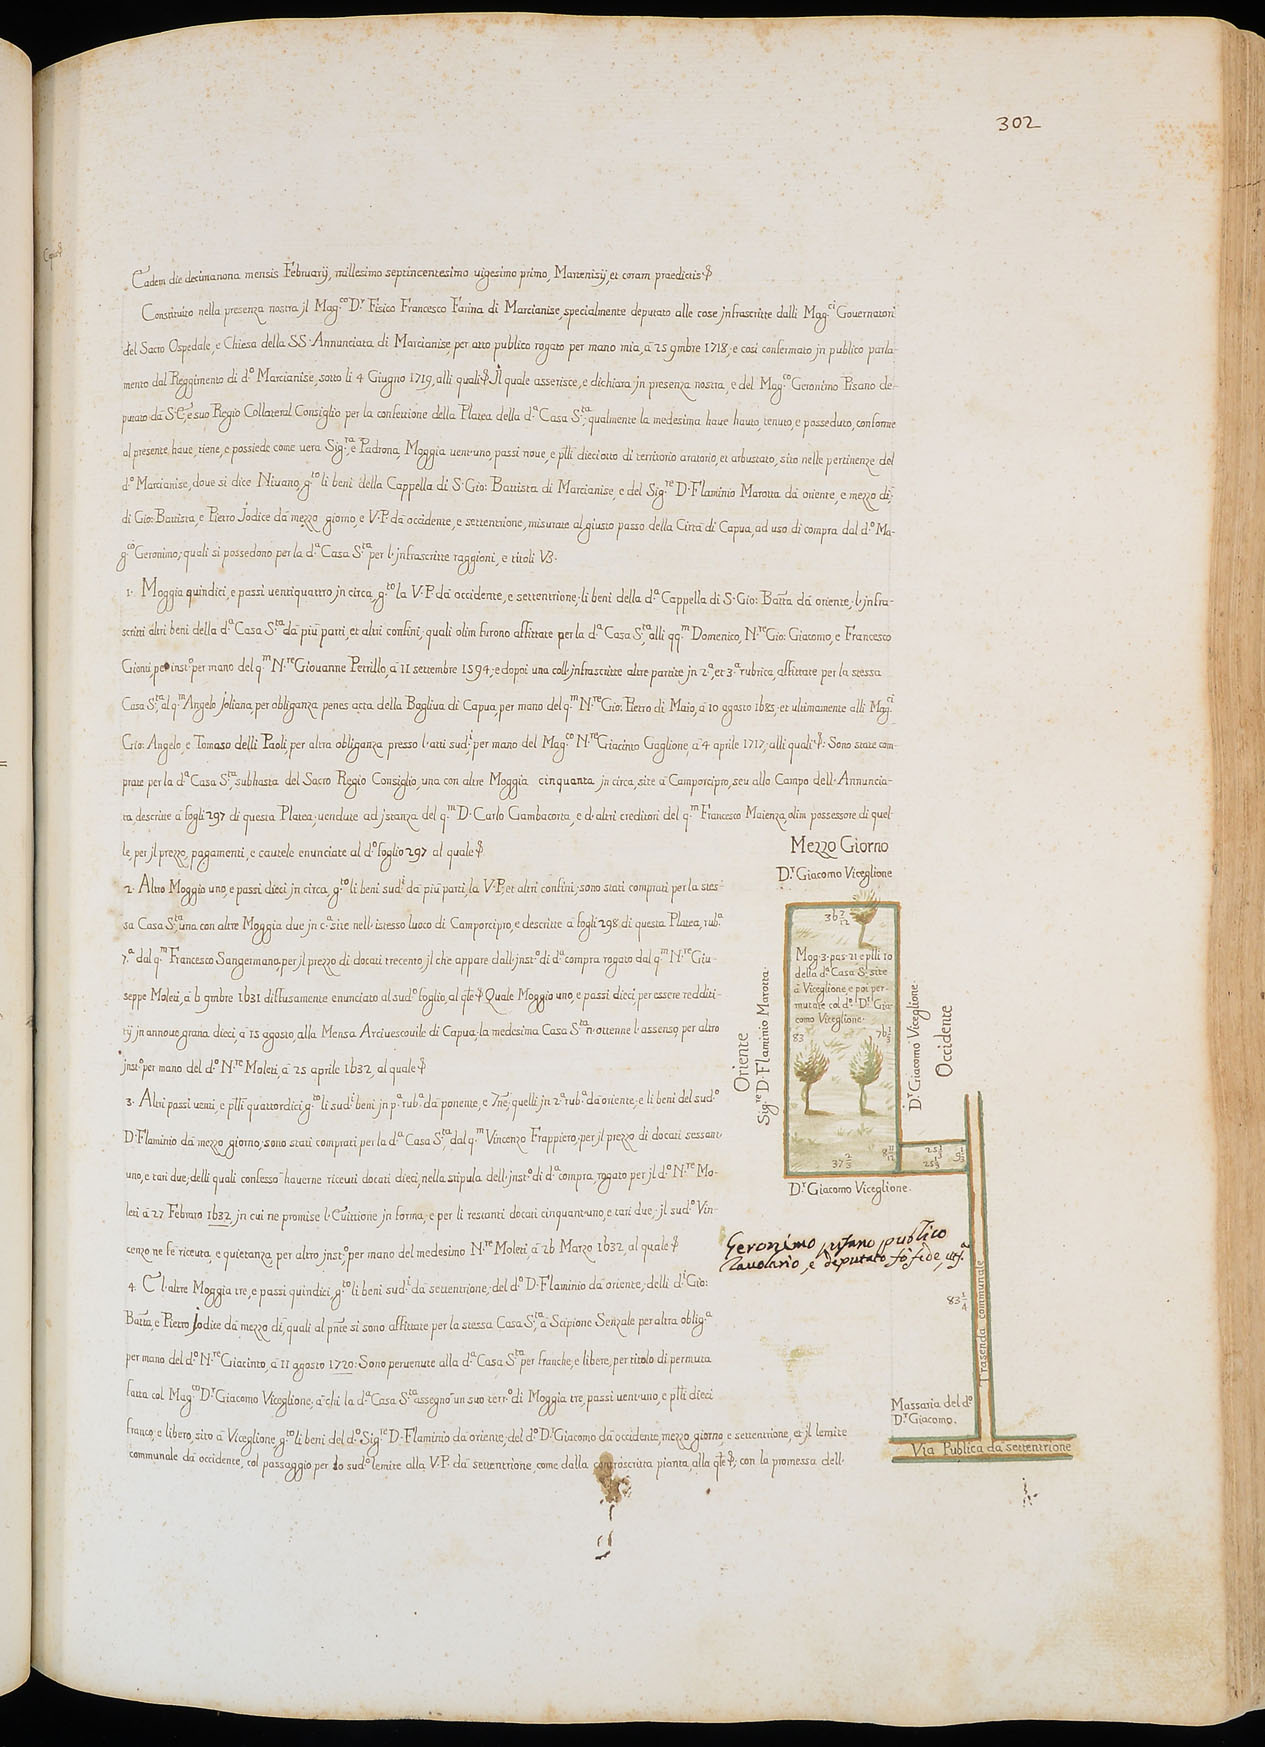 302
Eadem die decimanona mensis Februarij, millesimo septincentesimo uigesimo primo, Martenisij, et coram praedictis
Constituito nella presenza nostra jl Mag.co D.r Fisico Francesco Farina di Marcianise, specialmente deputato alle cose jnfrascritte dalli Mag.ci Gouernatori
del Sacro Ospedale, e Chiesa della SS. Annunciata di Marcianise, per atto publico rogato per mano mia, à 25 9mbre 1718, e cosi confermato jn publico parla-
mento dal Reggimento di d.o Marcianise, sotto li 4 Giugno 1719, alli quali Jl quale asserisce, e dichiara jn presenza nostra, e del Mag.co Geronimo Pisano de-
putato dà S. E., e suo Regio Collateral Consiglio per la confettione della Platea della d.a Casa S.ta, qualmente la medesima haue hauto, tenuto, e posseduto, conforme
al presente haue, tiene, e possiede come uera Sig.ra, e Padrona, Moggia uent'uno, passi noue, e p̄lli dieciotto di territorio aratorio, et arbustato, sito nelle pertinenze del
d.o Marcianise, doue si dice Niuano, g.to li beni della Cappella di S. Gio: Battista di Marcianise, e del Sig.re D. Flaminio Marotta dà oriente, e mezzo dì,
di Gio: Battista, e Pietro Jodice dà mezzo giorno, e V. P. dà occidente, e settentrione, misurate al giusto passo della Città di Capua, ad uso di compra dal d.o Ma-
g.co Geronimo; quali si possedono per la d.a Casa S.ta per l'jnfrascritte raggioni, e titoli V3.
1. Moggia quindici, e passi uentiquattro jn circa, g.to la V. P. dà occidente, e settentrione, li beni della d.a Cappella di S. Gio: Batt̄a dà oriente, l'jnfra-
scritti altri beni della d.a Casa S.ta dà più parti, et altri confini; quali olim furono affittate per la d.a Casa S.ta alli qq.m Domenico, N.re Gio: Giacomo, e Francesco
Gionti, per inst.o per mano del q.m N.re Giouanne Petrillo, à 11 settembre 1594; e dopoi una coll'jnfrascritte altre partite jn 2.a, et 3.a rubrica, affittate per la stessa
Casa S.ta al q.m Angelo Joliana, per obliganza penes acta della Bagliua di Capua, per mano del q.m N.re Gio: Pietro di Maio, à 10 agosto 1685, et ultimamente alli Mag.ci
Gio: Angelo, e Tomaso delli Paoli, per altra obliganza presso l'atti sud.i per mano del Mag.co N.re Giacinto Gaglione, à 4 aprile 1717, alli quali: Sono state com-
prate per la d.a Casa S.ta, subhasta del Sacro Regio Consiglio, una con altre Moggia cinquanta jn circa, site à Camporcipro, seu allo Campo dell'Annuncia-
ta, descritte à fogli 297 di questa Platea, uendute ad jstanza del q.m D. Carlo Gambacorta, e d'altri creditori del q.m Francesco Maienza, olim possessore di quel-
le, per jl prezzo, pagamenti, e cautele enunciate al d.o foglio 297 al quale
2. Altro Moggio uno, e passi dieci jn circa, g.to li beni sud.i dà più parti, la V. P., et altri confini; sono stati comprati per la stes-
sa Casa S.ta, una con altre Moggia due jn c.a site nell'istesso luoco di Camporcipro, e descritte à fogli 298 di questa Platea, rub.a
7.a dal q.m Francesco Sangermano, per jl prezzo di docati trecento, jl che appare dall'jnst.o di d.a compra rogato dal q.m N.re Giu-
seppe Moleti, à 6 9mbre 1631 diffusamente enunciato al sud.o foglio, al q̄le Quale Moggio uno, e passi dieci, per essere redditi-
tij jn annoue grana dieci, à 15 agosto, alla Mensa Arciuescouile di Capua; la medesima Casa S.ta n'ottenne l'assenso, per altro
jnst.o per mano del d.o N.re Moleti, à 25 aprile 1632, al quale
3. Altri passi uenti, e p̄lli quattordici, g.to li sud.i beni jn p.a rub.a dà ponente, e 7n̄e; quelli jn 2.a rub.a dà oriente, e li beni del sud.o
D. Flaminio dà mezzo giorno; sono stati comprati per la d.a Casa S.ta dal q.m Vincenzo Frappiero, per jl prezzo di docati sessant'
uno, e tarì due; delli quali confessò hauerne riceuti docati dieci, nella stipula dell'jnst.o di d.a compra, rogato per jl d.o N.re Mo-
leti à 27 Febraro 1632, jn cui ne promise l'Euittione jn forma, e per li restanti docati cinquant'uno, e tarì due, jl sud.o Vin-
cenzo ne fè riceuta, e quietanza, per altro jnst.o, per mano del medesimo N.re Moleti, à 26 Marzo 1632, al quale
4. E l'altre Moggia tre, e passi quindici, g.to li beni sud.i dà settentrione, del d.o D. Flaminio dà oriente, delli d.i Gio:
Batt̄a, e Pietro Jodice dà mezzo dì, quali al pn̄te si sono affittate per la stessa Casa S.ta à Scipione Senzale per altra oblig.a
per mano del d.o N.re Giacinto, à 11 agosto 1720: Sono peruenute alla d.a Casa S.ta per franche, e libere, per titolo di permuta
fatta col Mag.co D.r Giacomo Viceglione, à chi la d.a Casa S.ta assegnò un suo terr.o di Moggia tre, passi uent'uno, e p̄lli dieci
franco, e libero, sito à Viceglione, g.to li beni del d.o Sig.re D. Flaminio dà oriente, del d.o D.r Giacomo dà occidente, mezzo giorno, e settentrione, et jl lemite
communale dà occidente, col passaggio per lo sud.o lemite alla V. P. dà settentrione, come dalla controscritta pianta, alla q̄le; con la promessa dell'
Mezzo Giorno
D.r Giacomo Viceglione
36 7/12
Mog. 3. pas. 21 e p̄lli 10
della d.a Casa S.ta site
à Viceglione, e poi per-
mutate col d.o D.r Gia-
como Viceglione.
83
76 1/3
Oriente
Sig.re D. Flaminio Marotta.
D.r Giacomo Viceglione.
Occidente
37 2/3
8 11/12
25 1/3
D.r Giacomo Viceglione.
Geronimo pisano publico
Tauolario, e deputato fò fede, ut s.a
83 1/4
Trasenda communale
Massaria del d.o
D.r Giacomo.
Via Publica dà settentrione